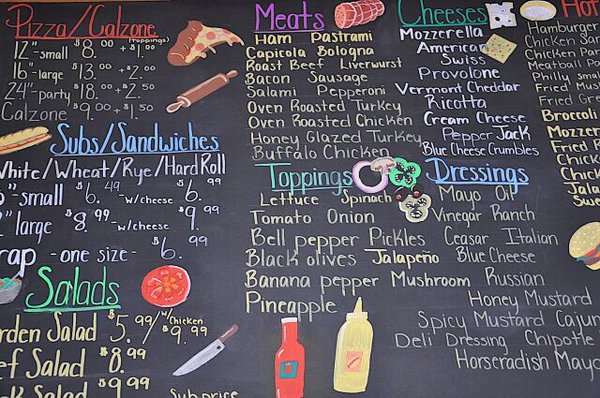 Pizza/Calzone
(toppings)
12"-small $8.00 +$1.00
16"-large $13.00 +2.00
24"-party $18.00 +$2.50
Calzone $9.00 +1.50
Subs/Sandwiches
White/Wheat/Rye/Hard Roll
"-small $6.49 -w/cheese $6.99
" large $8.99 -w/cheese $9.99
rap -one size- $6.99
Salads
rden Salad $5.99 w/chicken $9.99
ef Salad $8.99
Salad $9.99
Sub price
Meats
Ham Pastrami
Capicola Bologna
Roast Beef Liverwurst
Bacon Sausage
Salami Pepperoni
Oven Roasted Turkey
Oven Roasted Chicken
Honey Glazed Turkey
Buffalo Chicken
Toppings
Lettuce Spinach
Tomato Onion
Bell pepper Pickles
Black olives Jalapeño
Banana pepper Mushroom
Pineapple
Cheeses
Mozzerella
American
Swiss
Provolone
Vermont Cheddar
Ricotta
Cream Cheese
Pepper Jack
Blue Cheese Crumbles
Dressings
Mayo Oil
Vinegar Ranch
Ceasar Italian
Blue Cheese
Russian
Honey Mustard
Spicy Mustard Cajun
Deli Dressing Chipotle
Horseradish Mayo
Hot
Hamburger
Chicken San
Chicken Par
Meatball Po
Philly small
Fried Mus
Fried Gre
Broccoli
Mozzere
Fried R
Chicke
Chick
Jala
Swe